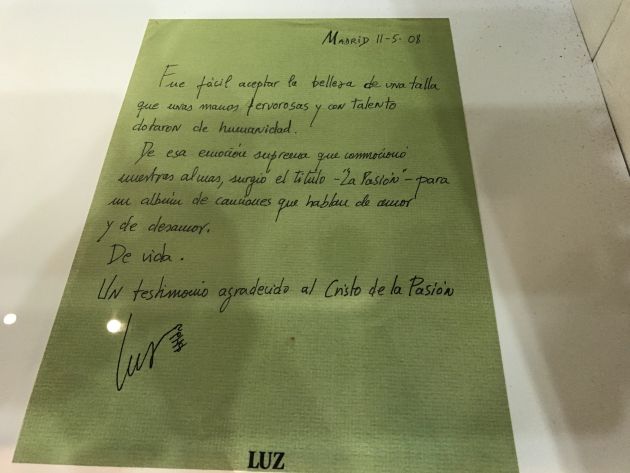 MADRID 11-5-08
Fue fácil aceptar la belleza de una talla
que unas manos fervorosas y con talento
dotaron de humanidad.
De esa emoción suprema que conmocionó
nuestras almas, surgió el título -"La Pasión"- para
un álbum de canciones que hablan de amor
y de desamor.
De vida.
UN testimonio agradecido al Cristo de la Pasión
Luz
LUZ